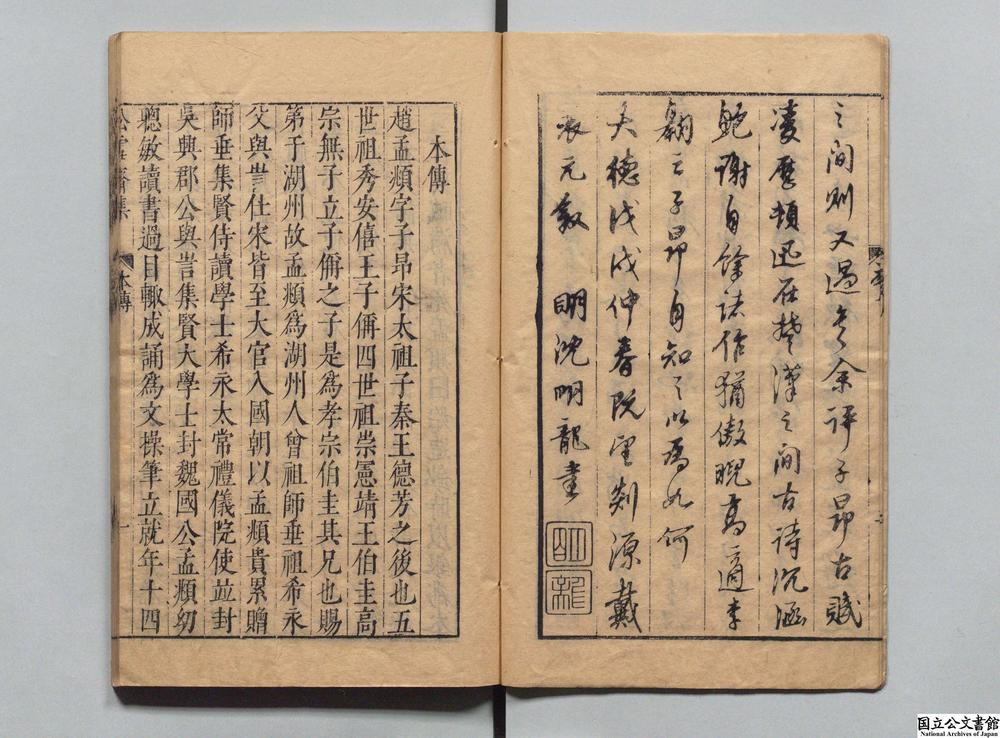 之間則又過之余評子昂古賦
凌厲頓迅在楚漢之間古詩沉涵
鮑謝自餘諸作猶傲睨高適李
翱云子昂自知之以爲如何
大德戊戌仲春既望剡源戴
表元敘　明沈明龍書
明龍
本傳
趙孟頫字子昂宋太祖子秦王德芳之後也五
世祖秀安僖王子偁四世祖崇憲靖王伯圭高
宗無子立子偁之子是爲孝宗伯圭其兄也賜
第于湖州故孟頫爲湖州人曾祖師垂祖希永
父與訔仕宋皆至大官入國朝以孟頫貴累贈
師垂集賢侍讀學士希永太常禮儀院使並封
吳興郡公與訔集賢大學士封魏國公孟頫幼
聰敏讀書過目輒成誦爲文操筆立就年十四
松雪齋集　本傳　一
国立公文書館
National Archives of Japan